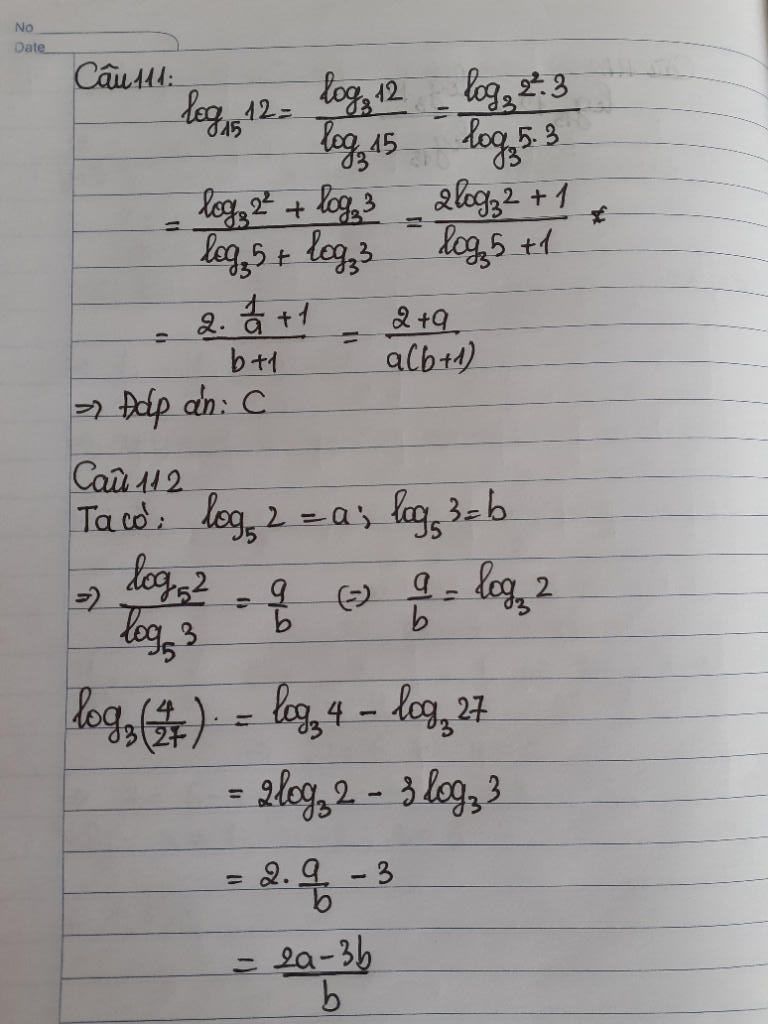 No
Date
Câu 111:
log₁₅12 = log₃12 / log₃15 = log₃2²·3 / log₃5·3
= (log₃2² + log₃3) / (log₃5 + log₃3) = (2log₃2 + 1) / (log₃5 + 1)
= (2·1/a + 1) / (b+1) = (2+a) / a(b+1)
=> Đáp án: C
Câu 112
Ta có: log₅2 = a; log₅3 = b
=> log₅2 / log₅3 = a/b (=) a/b = log₃2
log₃(4/27) = log₃4 - log₃27
= 2log₃2 - 3log₃3
= 2·a/b - 3
= (2a-3b) / b